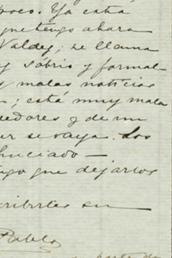 poco. Ya esta
que tengo ahora
Valdez; se llama
y sobrio y formal
malas noticias
; está muy mala
dedores y de mi
se vaya. Los
huciado —
que dejarlos
cribirles su
Pablo